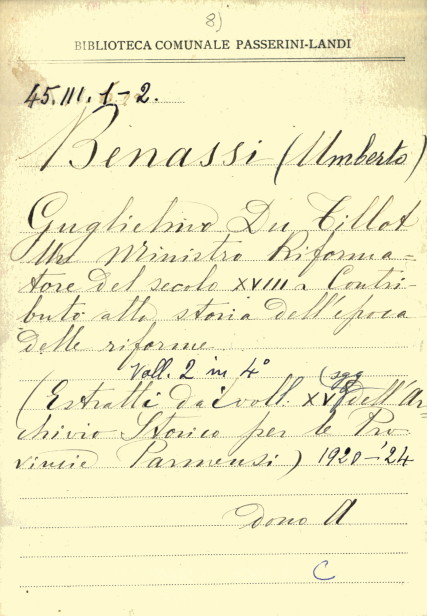 8)
BIBLIOTECA COMUNALE PASSERINI-LANDI
45.III.1-2.
Benassi (Umberto)
Guglielmo Du Tillot
Un Ministro Riforma=
tore del secolo XVIII - Contri-
buto alla storia dell'epoca
delle riforme
Voll. 2 in 4°
(Estratti dai voll. XV sgg dell'Ar=
chivio Storico per le Pro-
vincie Parmensi) 1920-'24
dono A
C